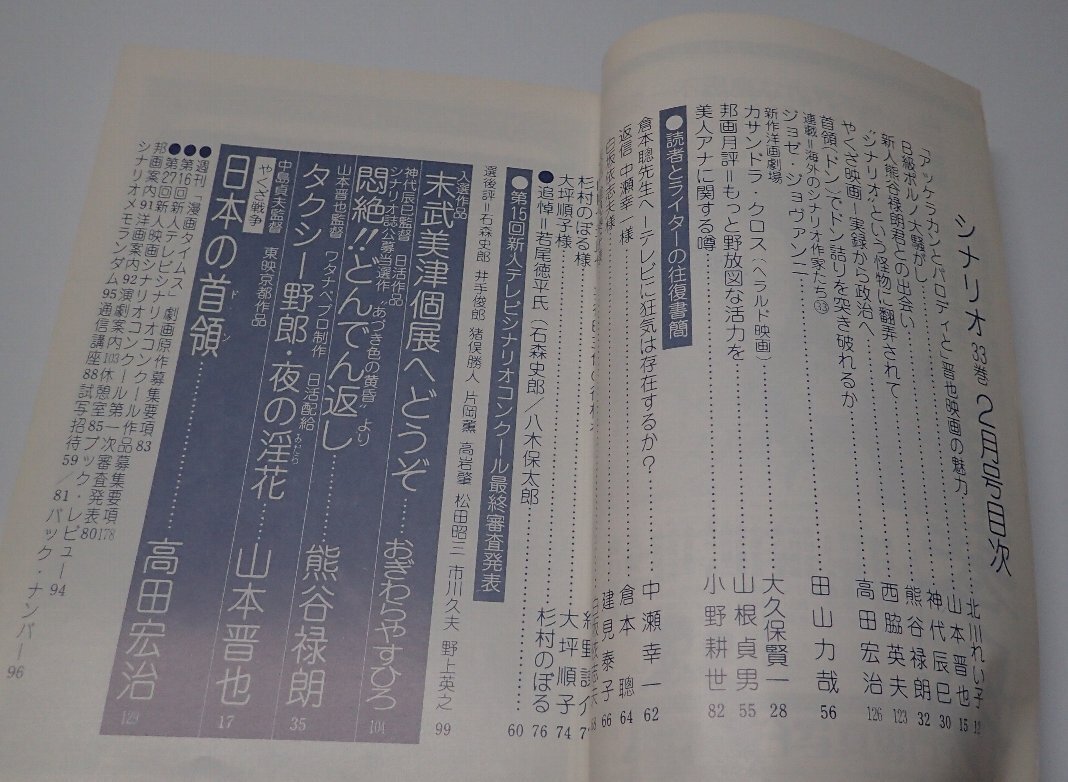 シナリオ33巻 2月号目次
「アッケラカンとパロディと」晋也映画の魅力……北川れい子 12
日級ポルノ大騒がし……山本晋也 15
新人熊谷禄朗君との出会い……神代辰巳 30
"シナリオ"という怪物に翻弄されて……熊谷禄朗 32
やくざ映画=実録から政治へ……西脇英夫 123
首領(ドン)でドン詰りを突き破れるか……高田宏治 126
連載=海外のシナリオ作家たち㉝
ジョゼ・ジョヴァンニ……田山力哉 56
新作洋画劇場
カサンドラ・クロス(ヘラルド映画)……大久保賢一 28
邦画月評=もっと野放図な活力を……山根貞男 55
美人アナに関する噂……小野耕世 82
●読者とライターの往復書簡
倉本聰先生へーテレビに狂気は存在するか?……中瀬幸一 62
返信 中瀬幸一様……倉本聰 64
建見泰子 66
杉村のぼる様……
大坪順子 74
大坪順子様……杉村のぼる 76
●追悼=若尾徳平氏(石森史郎/八木保太郎 60
●第15回新人テレビシナリオコンクール最終審査発表
選後評=石森史郎 井手俊郎 猪俣勝人 片岡薫 高岩肇 松田昭三 市川久夫 野上英之 99
入選作品
末武美津個展へどうぞ……おぎわらやすひろ 104
神代辰巳監督 日活作品
シナリオ誌公募当選作 "あづき色の黄昏"より
悶絶!!どんでん返し……熊谷禄朗 35
山本晋也監督 ワタナベプロ制作 日活配給
タクシー野郎・夜の淫花……山本晋也 17
中島貞夫監督 東映京都作品
やくざ戦争
日本の首領……高田宏治 129
ドン
●週刊「漫画タイムス」劇画原作募集要項83
●第16回新人テレビシナリオコンクール作品募集要項178
●第27回新人映画シナリオコンクール第一次審査発表80
邦画案内91洋画案内92演劇案内103休憩室85ブック・レビュー94
シナリオメモランダム95通信講座88試写招待59/81バック・ナンバー96